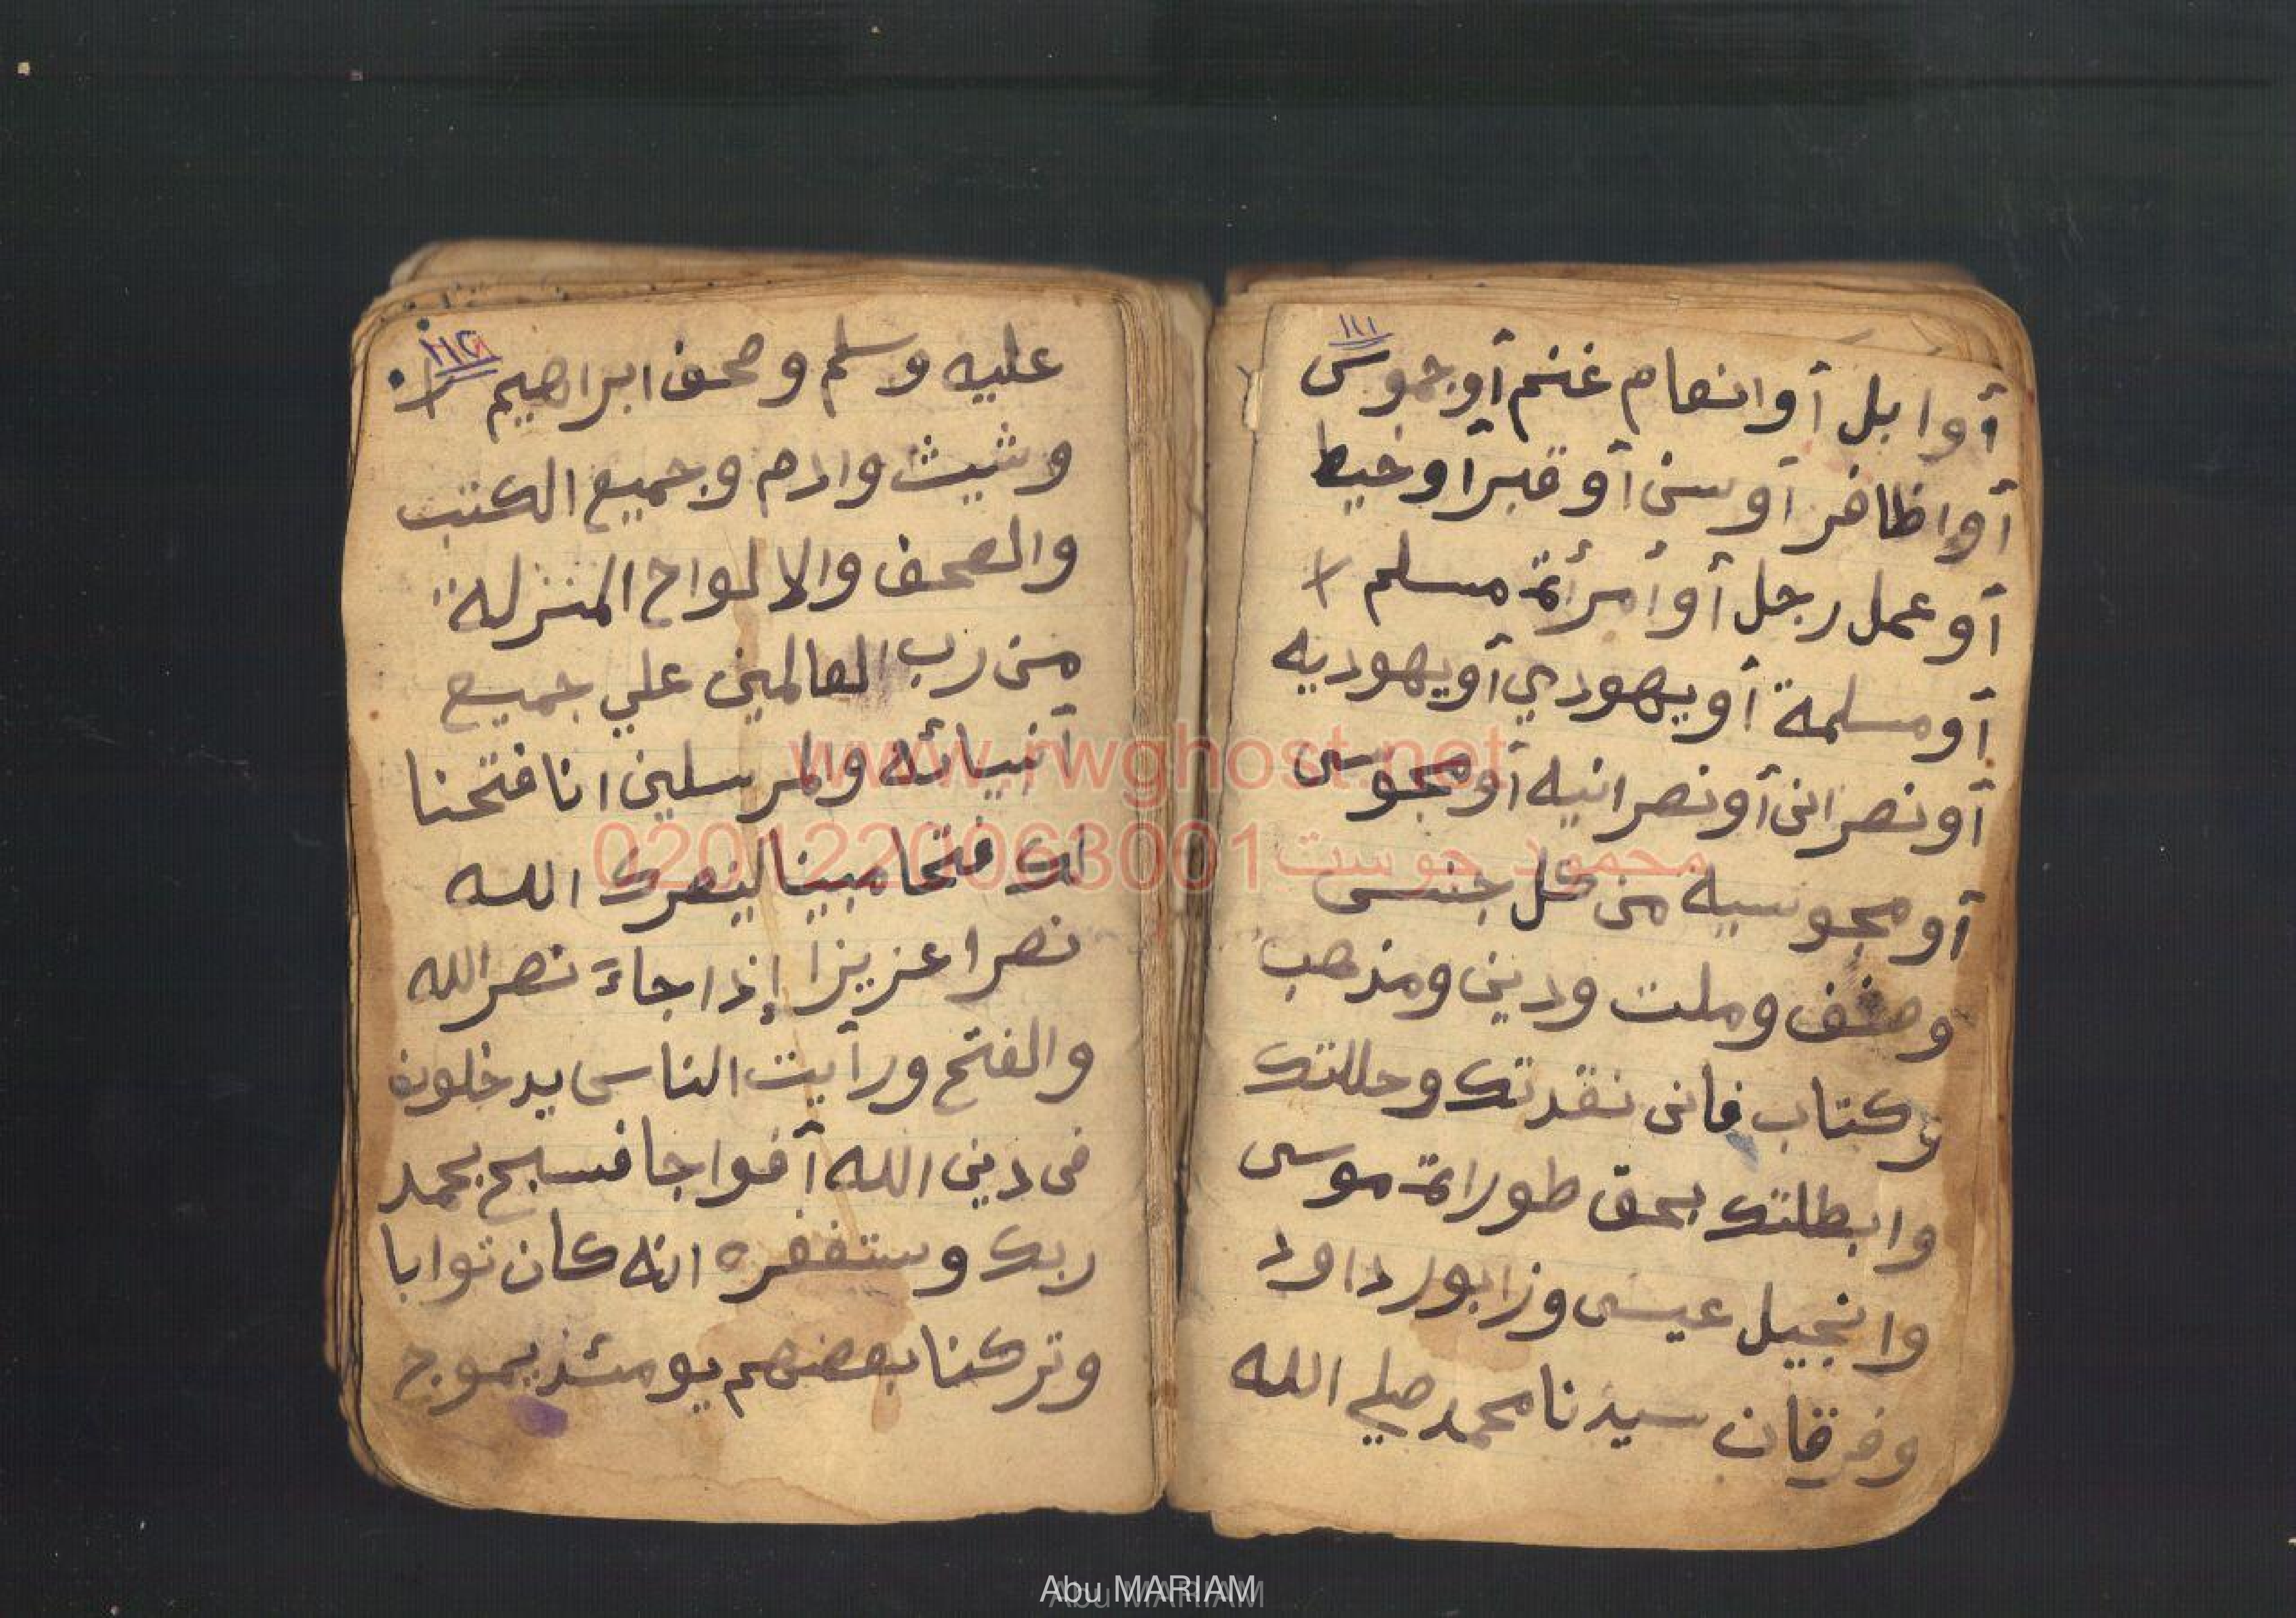 ١١١
أو ابل أو انعام غنم أو جموس
أو اظافر أو سن أو قبر أو خيط
أو عمل رجل أو أمرأة مسلم
أو مسلمة أو يهودي أو يهوديه
أو نصرانى أو نصرانيه أو مجوسى
أو مجوسيه من كل جنس
وصنف وملت ودين ومذهب
وكتاب فانى نقدتك وحللتك
وابطلتك بحق طوراة موسى
وانجيل عيسى وزابور داود
وفرقان سيدنا محمد صلي الله
١١٢
عليه وسلم وصحف ابراهيم
وشيث وادم وجميع الكتب
والصحف والالواح المنزله
من رب العالمين علي جميع
أنبيائه والمرسلين انا فتحنا
لك فتحا مبينا لينصرك الله
نصرا عزيزا إذا جاءَ نصر الله
والفتح ورأيت الناس يدخلون
فى دين الله أفواجا فسبح بحمد
ربك وستغفره انه كان توابا
وتركنا بعضهم يومئذ يموج
www.rwghost.net
محمود جوست 0201220063001
Abu MARIAM